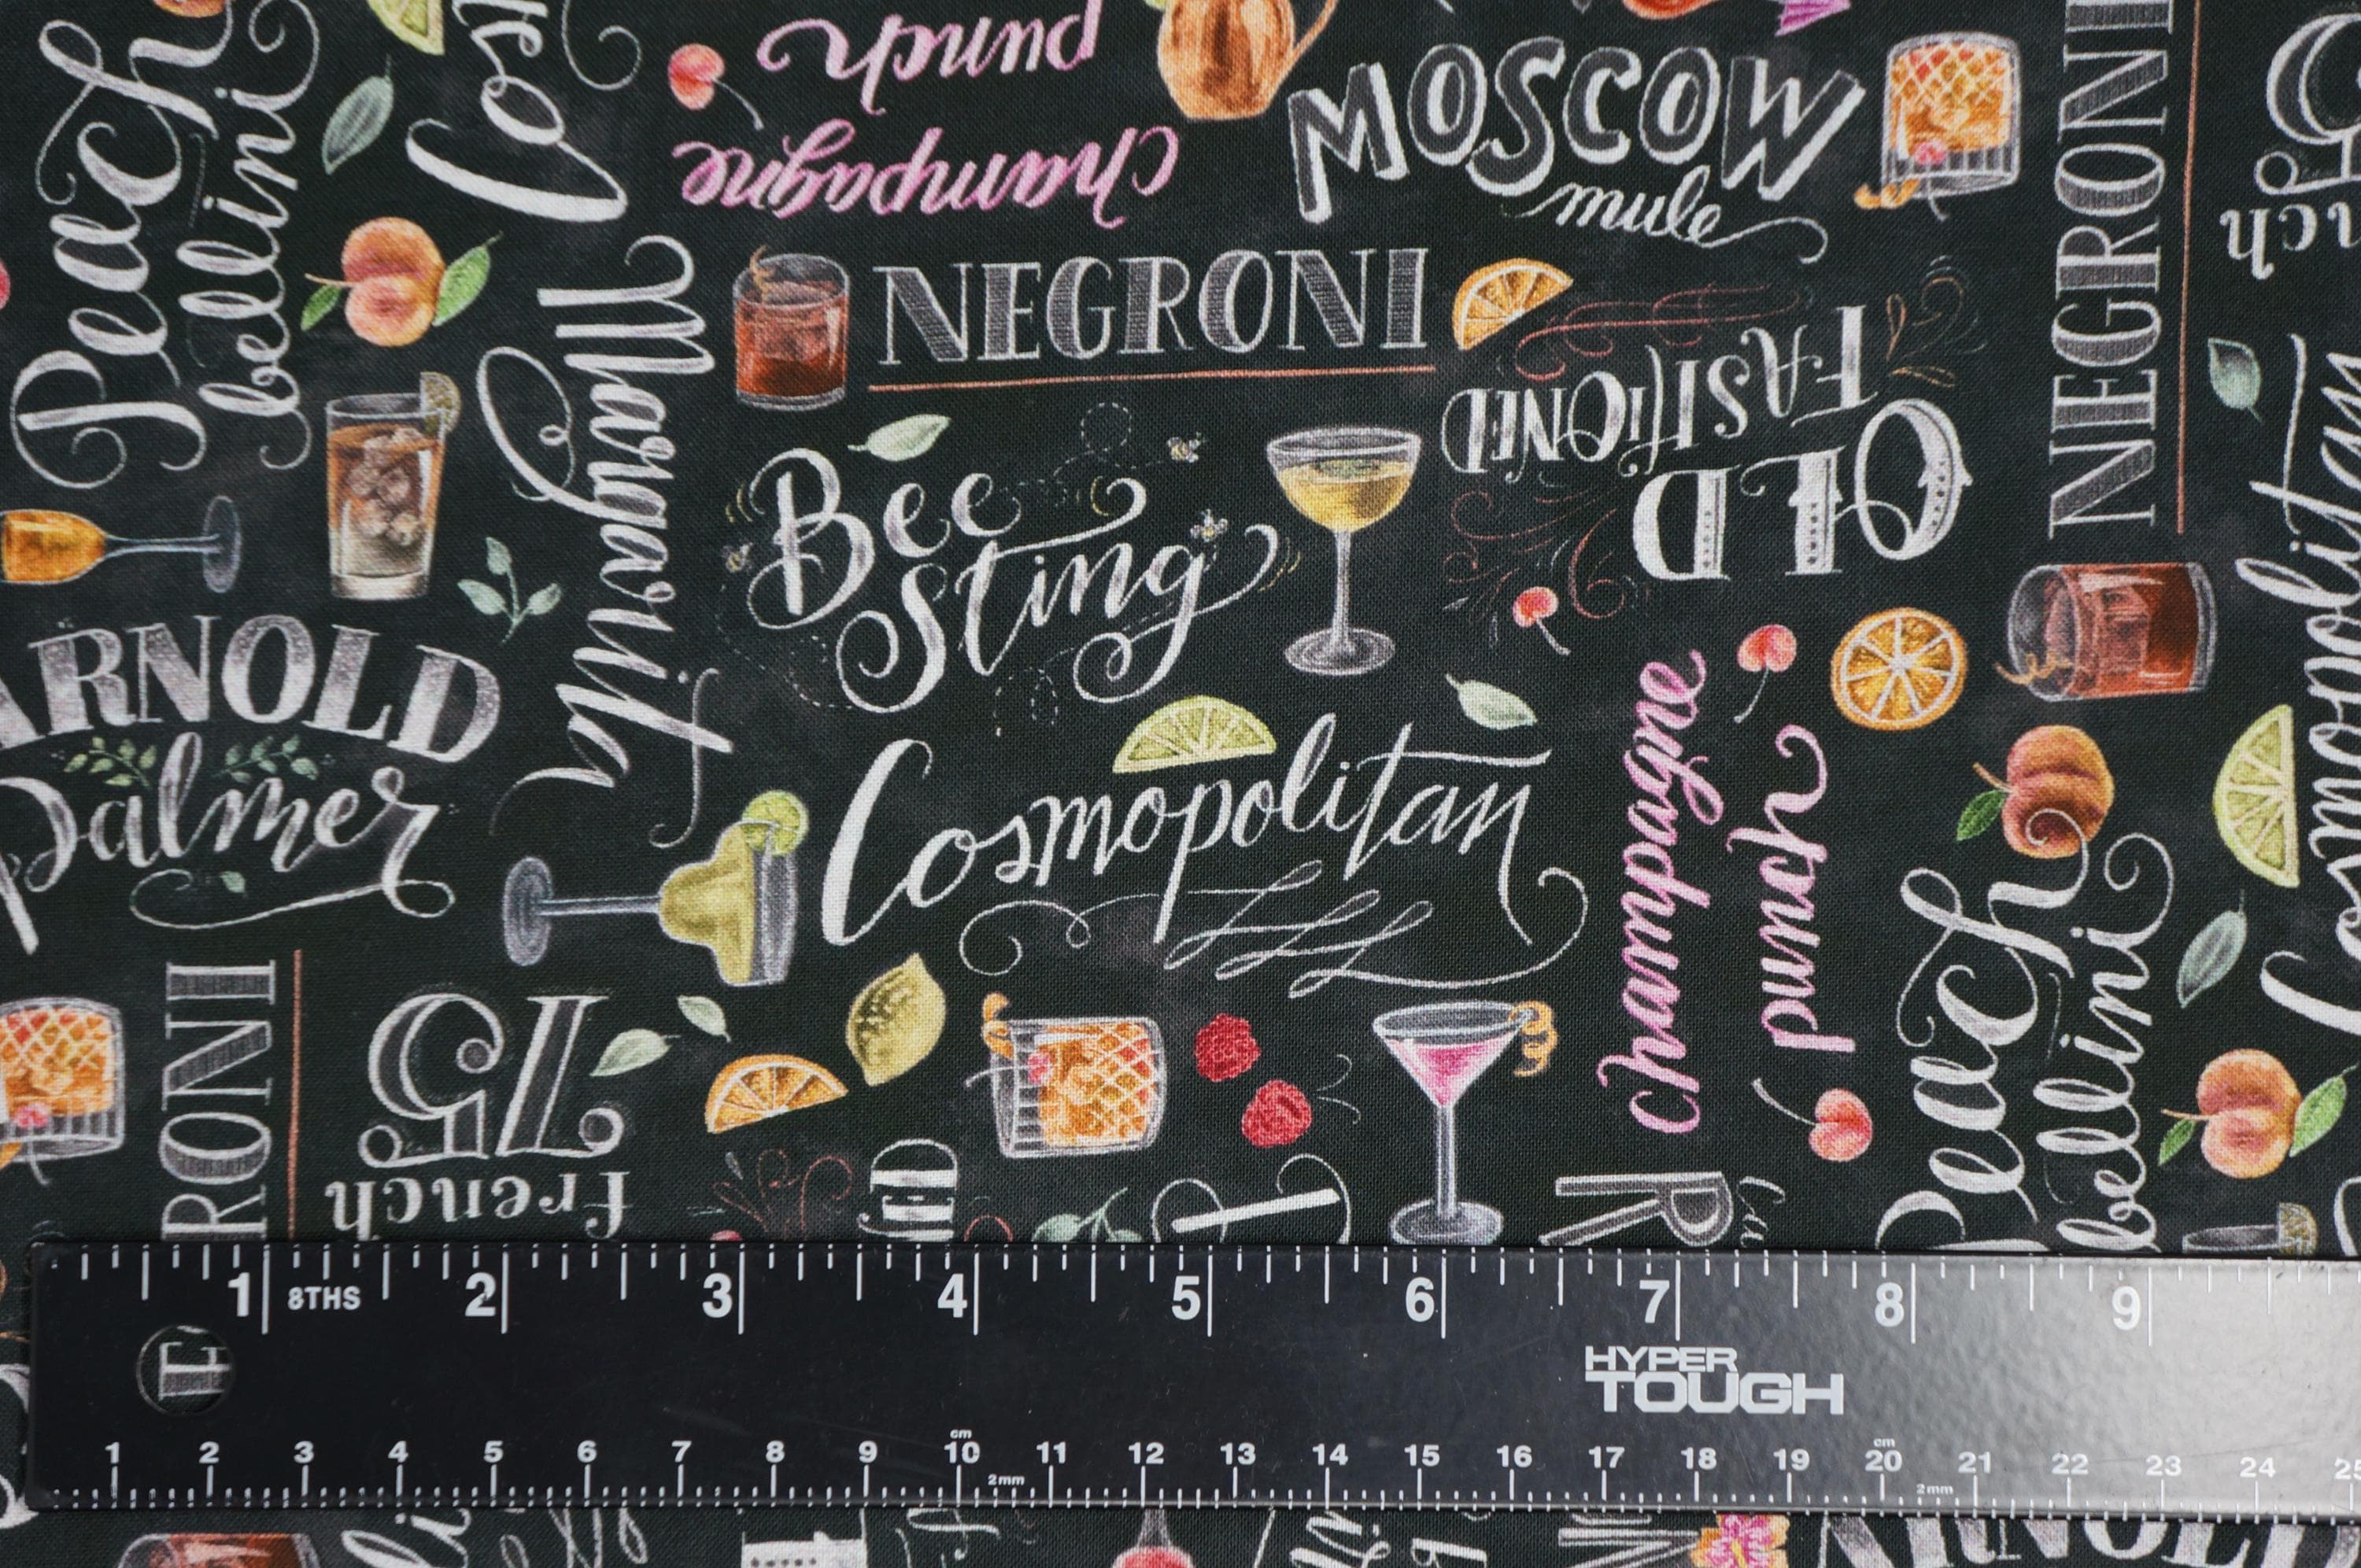 Peach
bellini
Cos
champagne
punch
MOSCOW
mule
NEGRONI
nch
Margarita
NEGRONI
OLD
FASHIONED
Bee
Sting
Cosmopolitan
ARNOLD
Palmer
Cosmopolitan
champagne
punch
Peach
bellini
RONI
French
75
R
1 2 3 4 5 6 7 8 9
8THS
E
HYPER
TOUGH
cm cm
1 2 3 4 5 6 7 8 9 10 11 12 13 14 15 16 17 18 19 20 21 22 23 24 25
2mm 2mm
ARNOLD